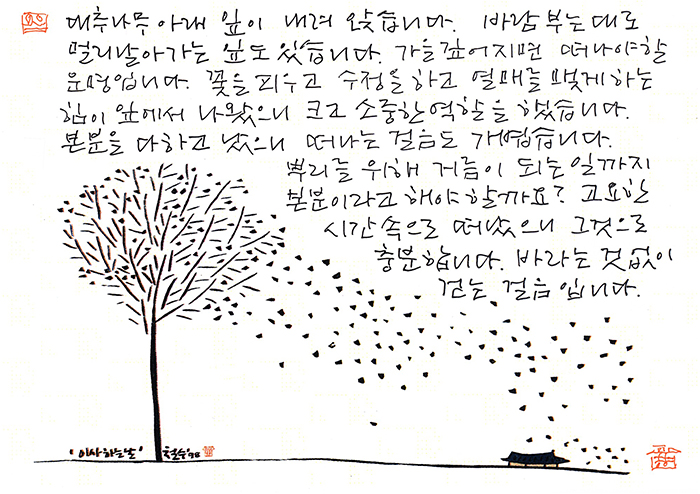 대추나무 아래 잎이 내려 앉습니다. 바람 부는대로
멀리날아가는 잎도 있습니다. 가을 깊어지면 떠나야할
운명입니다. 꽃을 피우고 수정을 하고 열매를 맺게 하는
힘이 잎에서 나왔으니 크고 소중한 역할을 했습니다.
본분을 다하고 났으니 떠나는 걸음도 개볍습니다.
뿌리를 위해 거름이 되는 일까지
본분이라고 해야 할까요? 고요한
시간 속으로 떠났으니 그것으로
충분합니다. 바라는 것 없이
걷는 걸음 입니다.
'이사하는날' 철수 '98